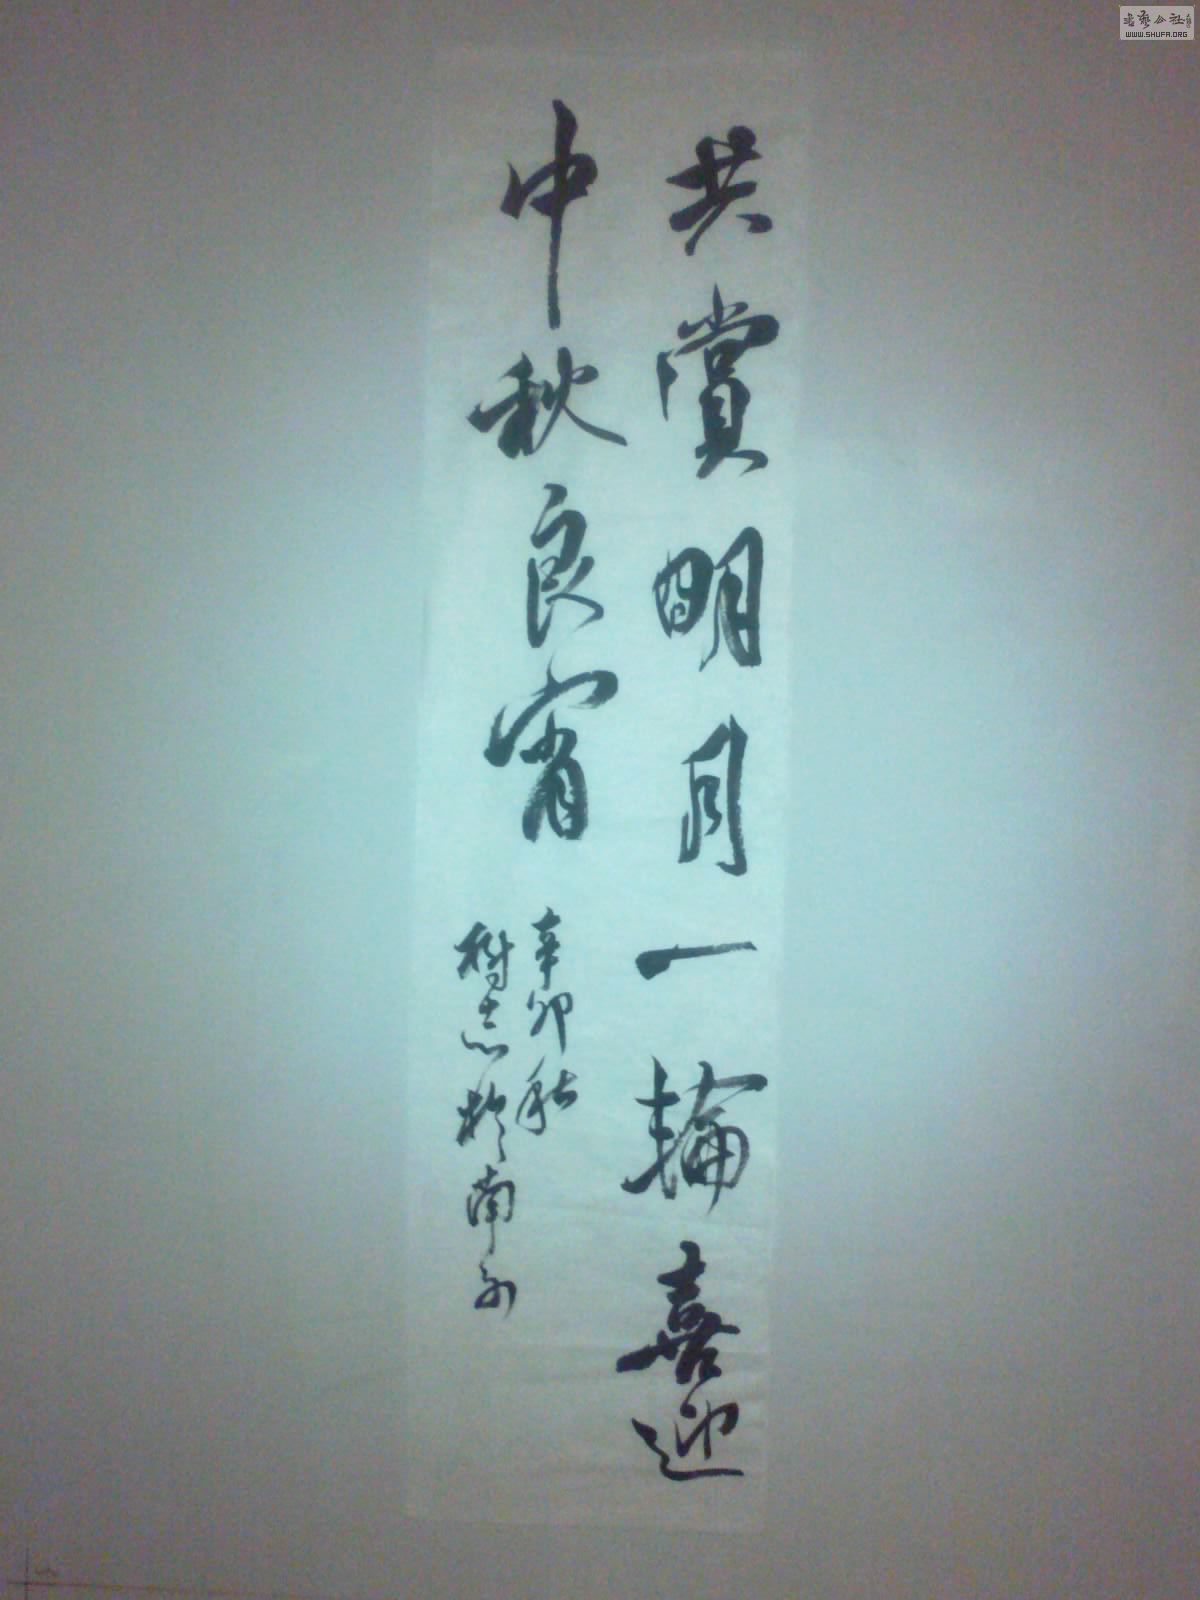 共赏明月一轮喜迎
中秋良宵
辛卯秋
树志於南
书艺公社
WWW.SHUFA.ORG